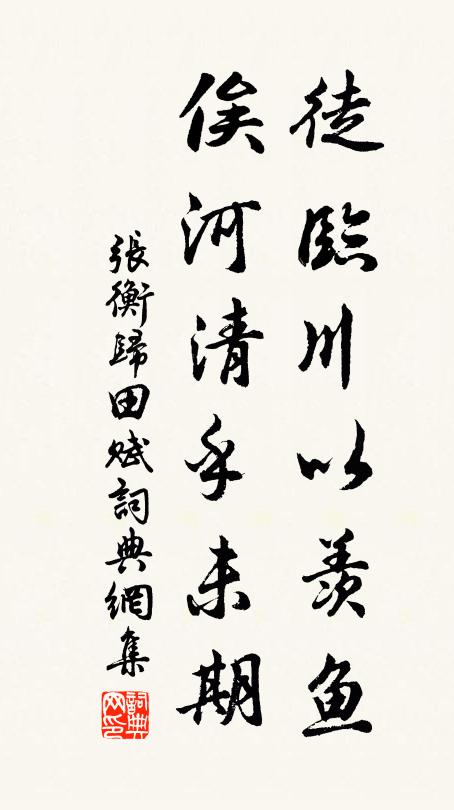 徒臨川以羨鱼
俟河清乎未期
張衡歸田赋詞典網集
詞典网印